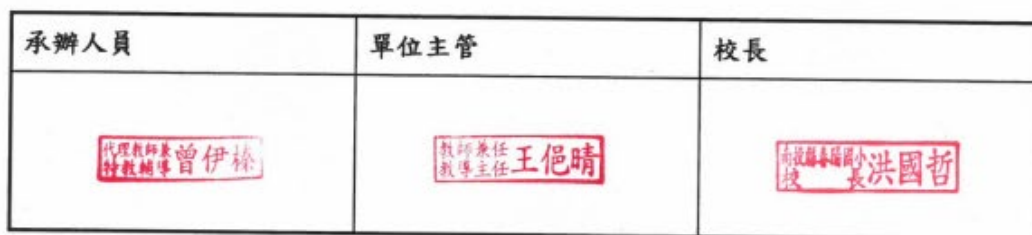 承辦人員
單位主管
校長
代理教師兼
特教輔導
曾伊榛
教師兼任
教導主任
王俋晴
南投縣春陽國小
校長
洪國哲